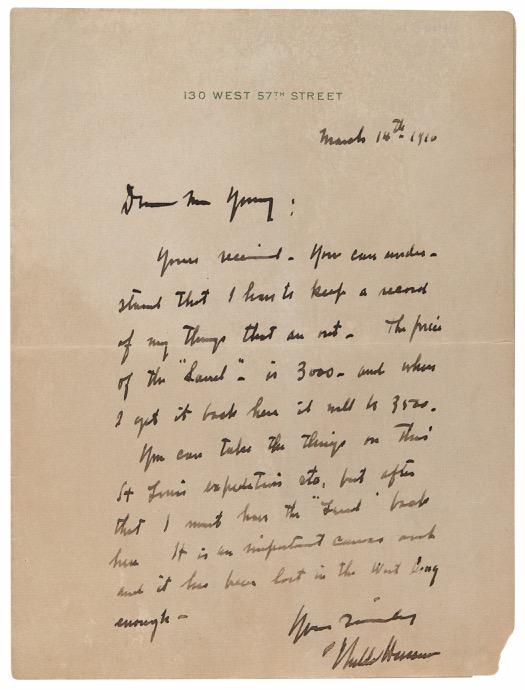 130 WEST 57TH STREET
March 14th 1910
Dear Mr Young:
Yours received - You can under-
stand that I have to keep a record
of my things that are out - The price
of the " " - is 3000 - and when
I get it back here it will be 3500.
You can take the things on this
St Louis expedition etc, but after
that I must have the " " back
here It is an important canvas
and it has been lost in the West long
enough -
Yours Sincerely
Childe Hassam